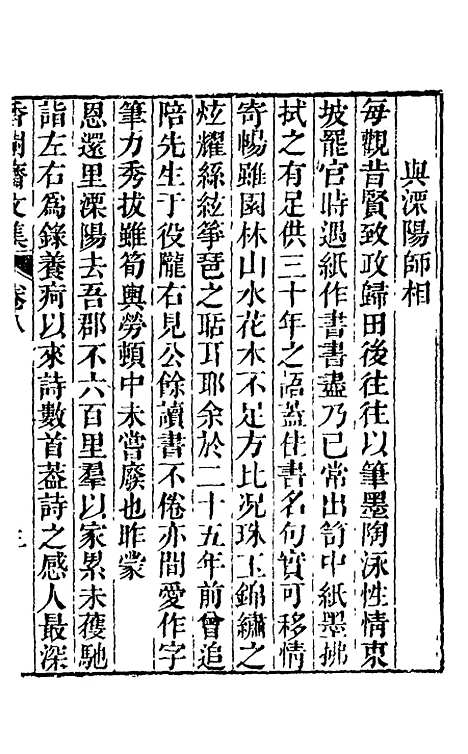 與溧陽師相
每觀昔賢致政歸田後往往以筆墨陶泳性情東
坡罷官時遇紙作書書盡乃已常出笥中紙墨拂
拭之有足供三十年之語蓋佳書名句實可移情
寄暢雖園林山水花木不足方比况珠玉錦繡之
炫耀絲絃箏琶之聒耳耶余於二十五年前曾追
陪先生于役隴右見公餘讀書不倦亦間愛作字
筆力秀拔雖筍輿勞頓中未嘗廢也昨蒙
恩還里溧陽去吾郡不六百里羣以家累未獲馳
詣左右爲錄養疴以來詩數首葢詩之感人最深
香樹齋文集 卷八 三